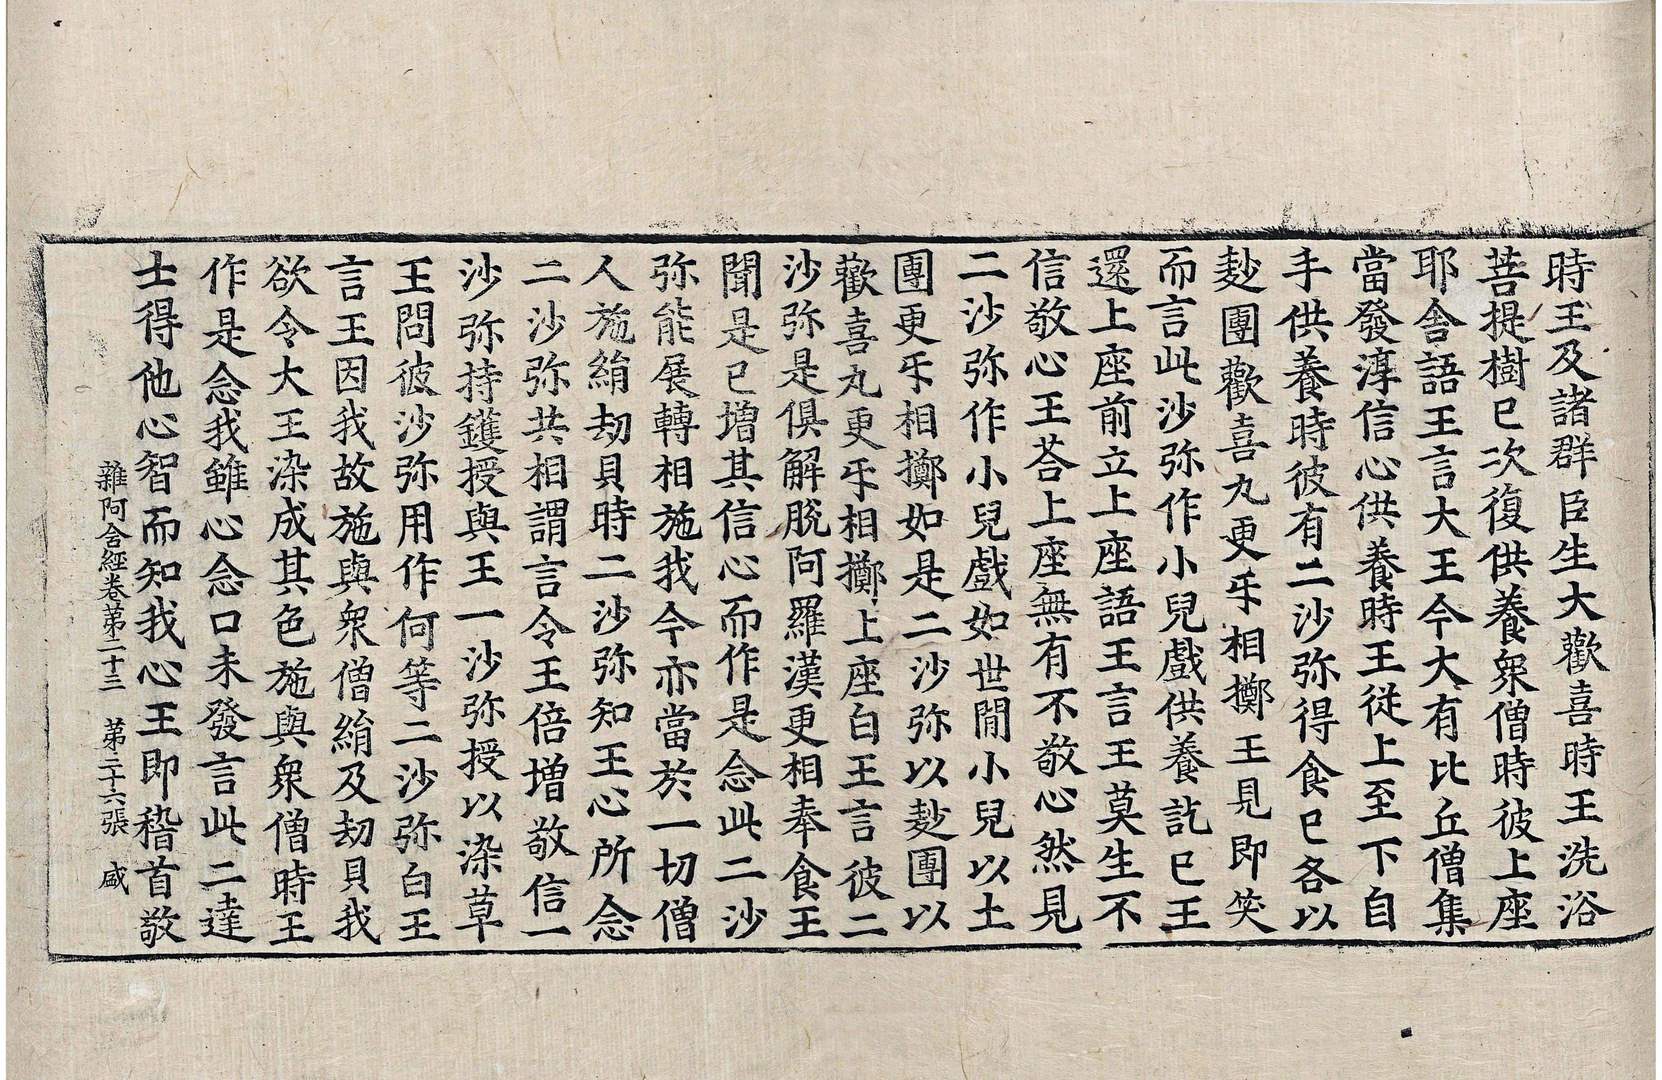 時王及諸群臣生大歡喜時王洗浴
菩提樹已次復供養衆僧時彼上座
耶舍語王言大王今大有比丘僧集
當發淳信心供養時王從上至下自
手供養時彼有二沙弥得食已各以
麨團歡喜丸更㸦相擲王見即笑
而言此沙弥作小兒戲供養訖已王
還上座前立上座語王言王莫生不
信敬心王荅上座無有不敬心然見
二沙弥作小兒戲如世閒小兒以土
團更㸦相擲如是二沙弥以麨團以
歡喜丸更㸦相擲上座白王言彼二
沙弥是俱解脫阿羅漢更相奉食王
聞是已增其信心而作是念此二沙
弥能展轉相施我今亦當於一切僧
人施絹劫貝時二沙弥知王心所念
二沙弥共相謂言令王倍增敬信一
沙弥持鑊授與王一沙弥授以染草
王問彼沙弥用作何等二沙弥白王
言王因我故施與衆僧絹及劫貝我
欲令大王染成其色施與衆僧時王
作是念我雖心念口未發言此二達
士得他心智而知我心王即稽首敬
雜阿含經卷苐二十三 苐二十六張 盛